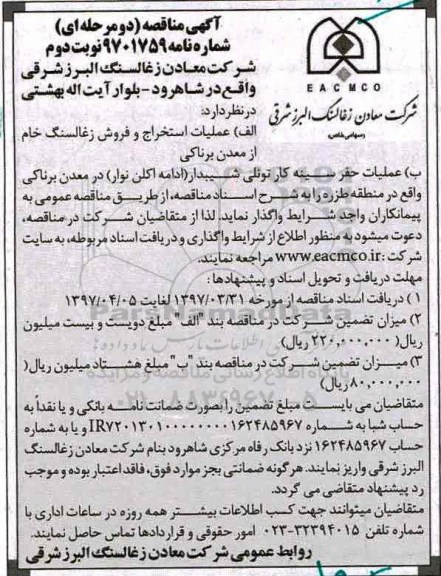 آگهی مناقصه (دو مرحله ای)
شماره نامه ۹۷۰۱۷۵۹ نوبت دوم
شرکت معادن زغالسنگ البرز شرقی
واقع در شاهرود - بلوار آیت اله بهشتی
در نظر دارد:
EACMCO
شرکت معادن زغالسنگ البرز شرقی
(سهامی خاص)
الف) عملیات استخراج و فروش زغالسنگ خام
از معدن برناکی
ب) عملیات حفر کار تونلی شیبدار (ادامه اکلن نوار) در معدن برناکی
واقع در منطقه طزره را به شرح اسناد مناقصه، از طریق مناقصه عمومی به
پیمانکاران واجد شرایط واگذار نماید. لذا از متقاضیان شرکت در مناقصه،
دعوت میشود به منظور اطلاع از شرایط واگذاری و دریافت اسناد مربوطه، به سایت
شرکت: www.eacmco.ir مراجعه نمایند.
مهلت دریافت و تحویل اسناد و پیشنهادها:
۱) دریافت اسناد مناقصه از مورخه ۱۳۹۷/۰۳/۳۱ لغایت ۱۳۹۷/۰۴/۰۵
۲) میزان تضمین شرکت در مناقصه بند "الف" مبلغ دویست و بیست میلیون
ریال (۲۲۰,۰۰۰,۰۰۰ ریال)
۳) میزان تضمین شرکت در مناقصه بند "ب" مبلغ هشتاد میلیون ریال (
۸۰,۰۰۰,۰۰۰ ریال)
متقاضیان می بایست مبلغ تضمین را بصورت ضمانت نامه بانکی و یا نقداً به
حساب شبا به شماره IR۷۲۰۱۳۰۱۰۰۰۰۰۰۰۰۱۶۲۴۸۵۹۶۷ و یا به شماره
حساب ۱۶۲۴۸۵۹۶۷ نزد بانک رفاه مرکزی شاهرود بنام شرکت معادن زغالسنگ
البرز شرقی واریز نمایند. هرگونه ضمانتی بجز موارد فوق، فاقد اعتبار بوده و موجب
رد پیشنهاد متقاضی می گردد.
متقاضیان میتوانند جهت کسب اطلاعات بیشتر همه روزه در ساعات اداری با
شماره تلفن ۳۲۳۹۴۰۱۵-۰۲۳ امور حقوقی و قراردادها تماس حاصل نمایند.
روابط عمومی شرکت معادن زغالسنگ البرز شرقی